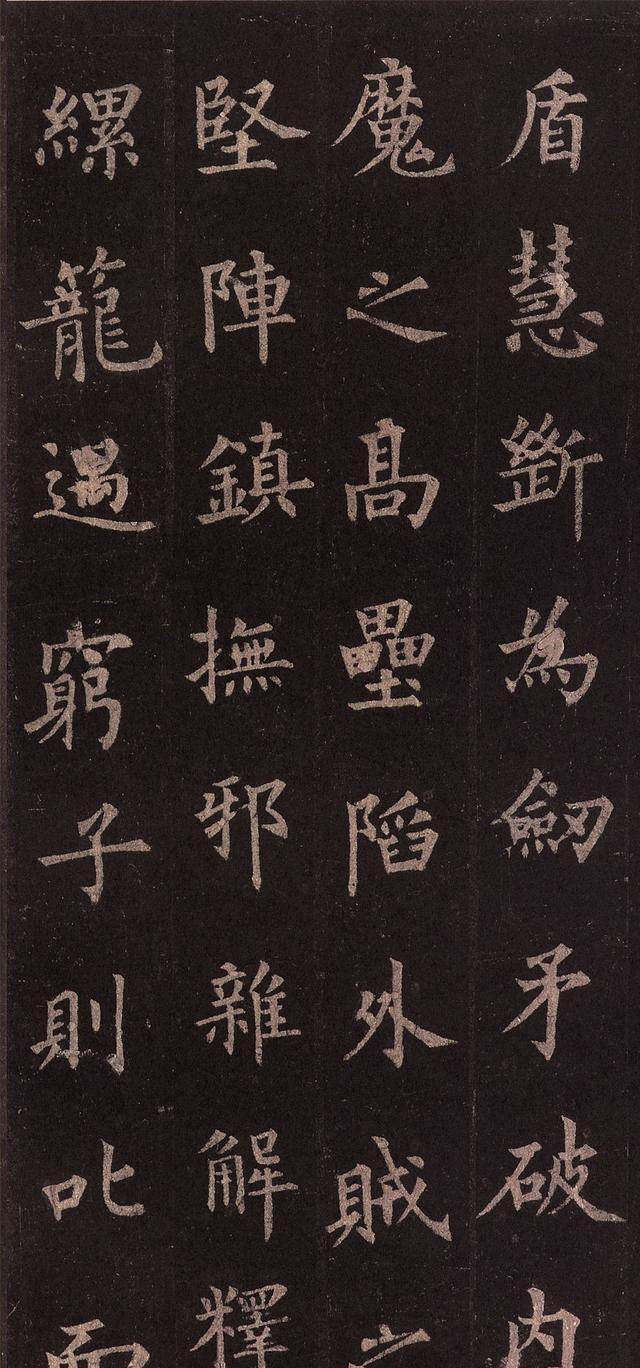 盾慧斷為劒矛破内
魔之高壘陷外賊之
堅陣鎮撫邪雜解釋
縲籠遇窮子則叱而